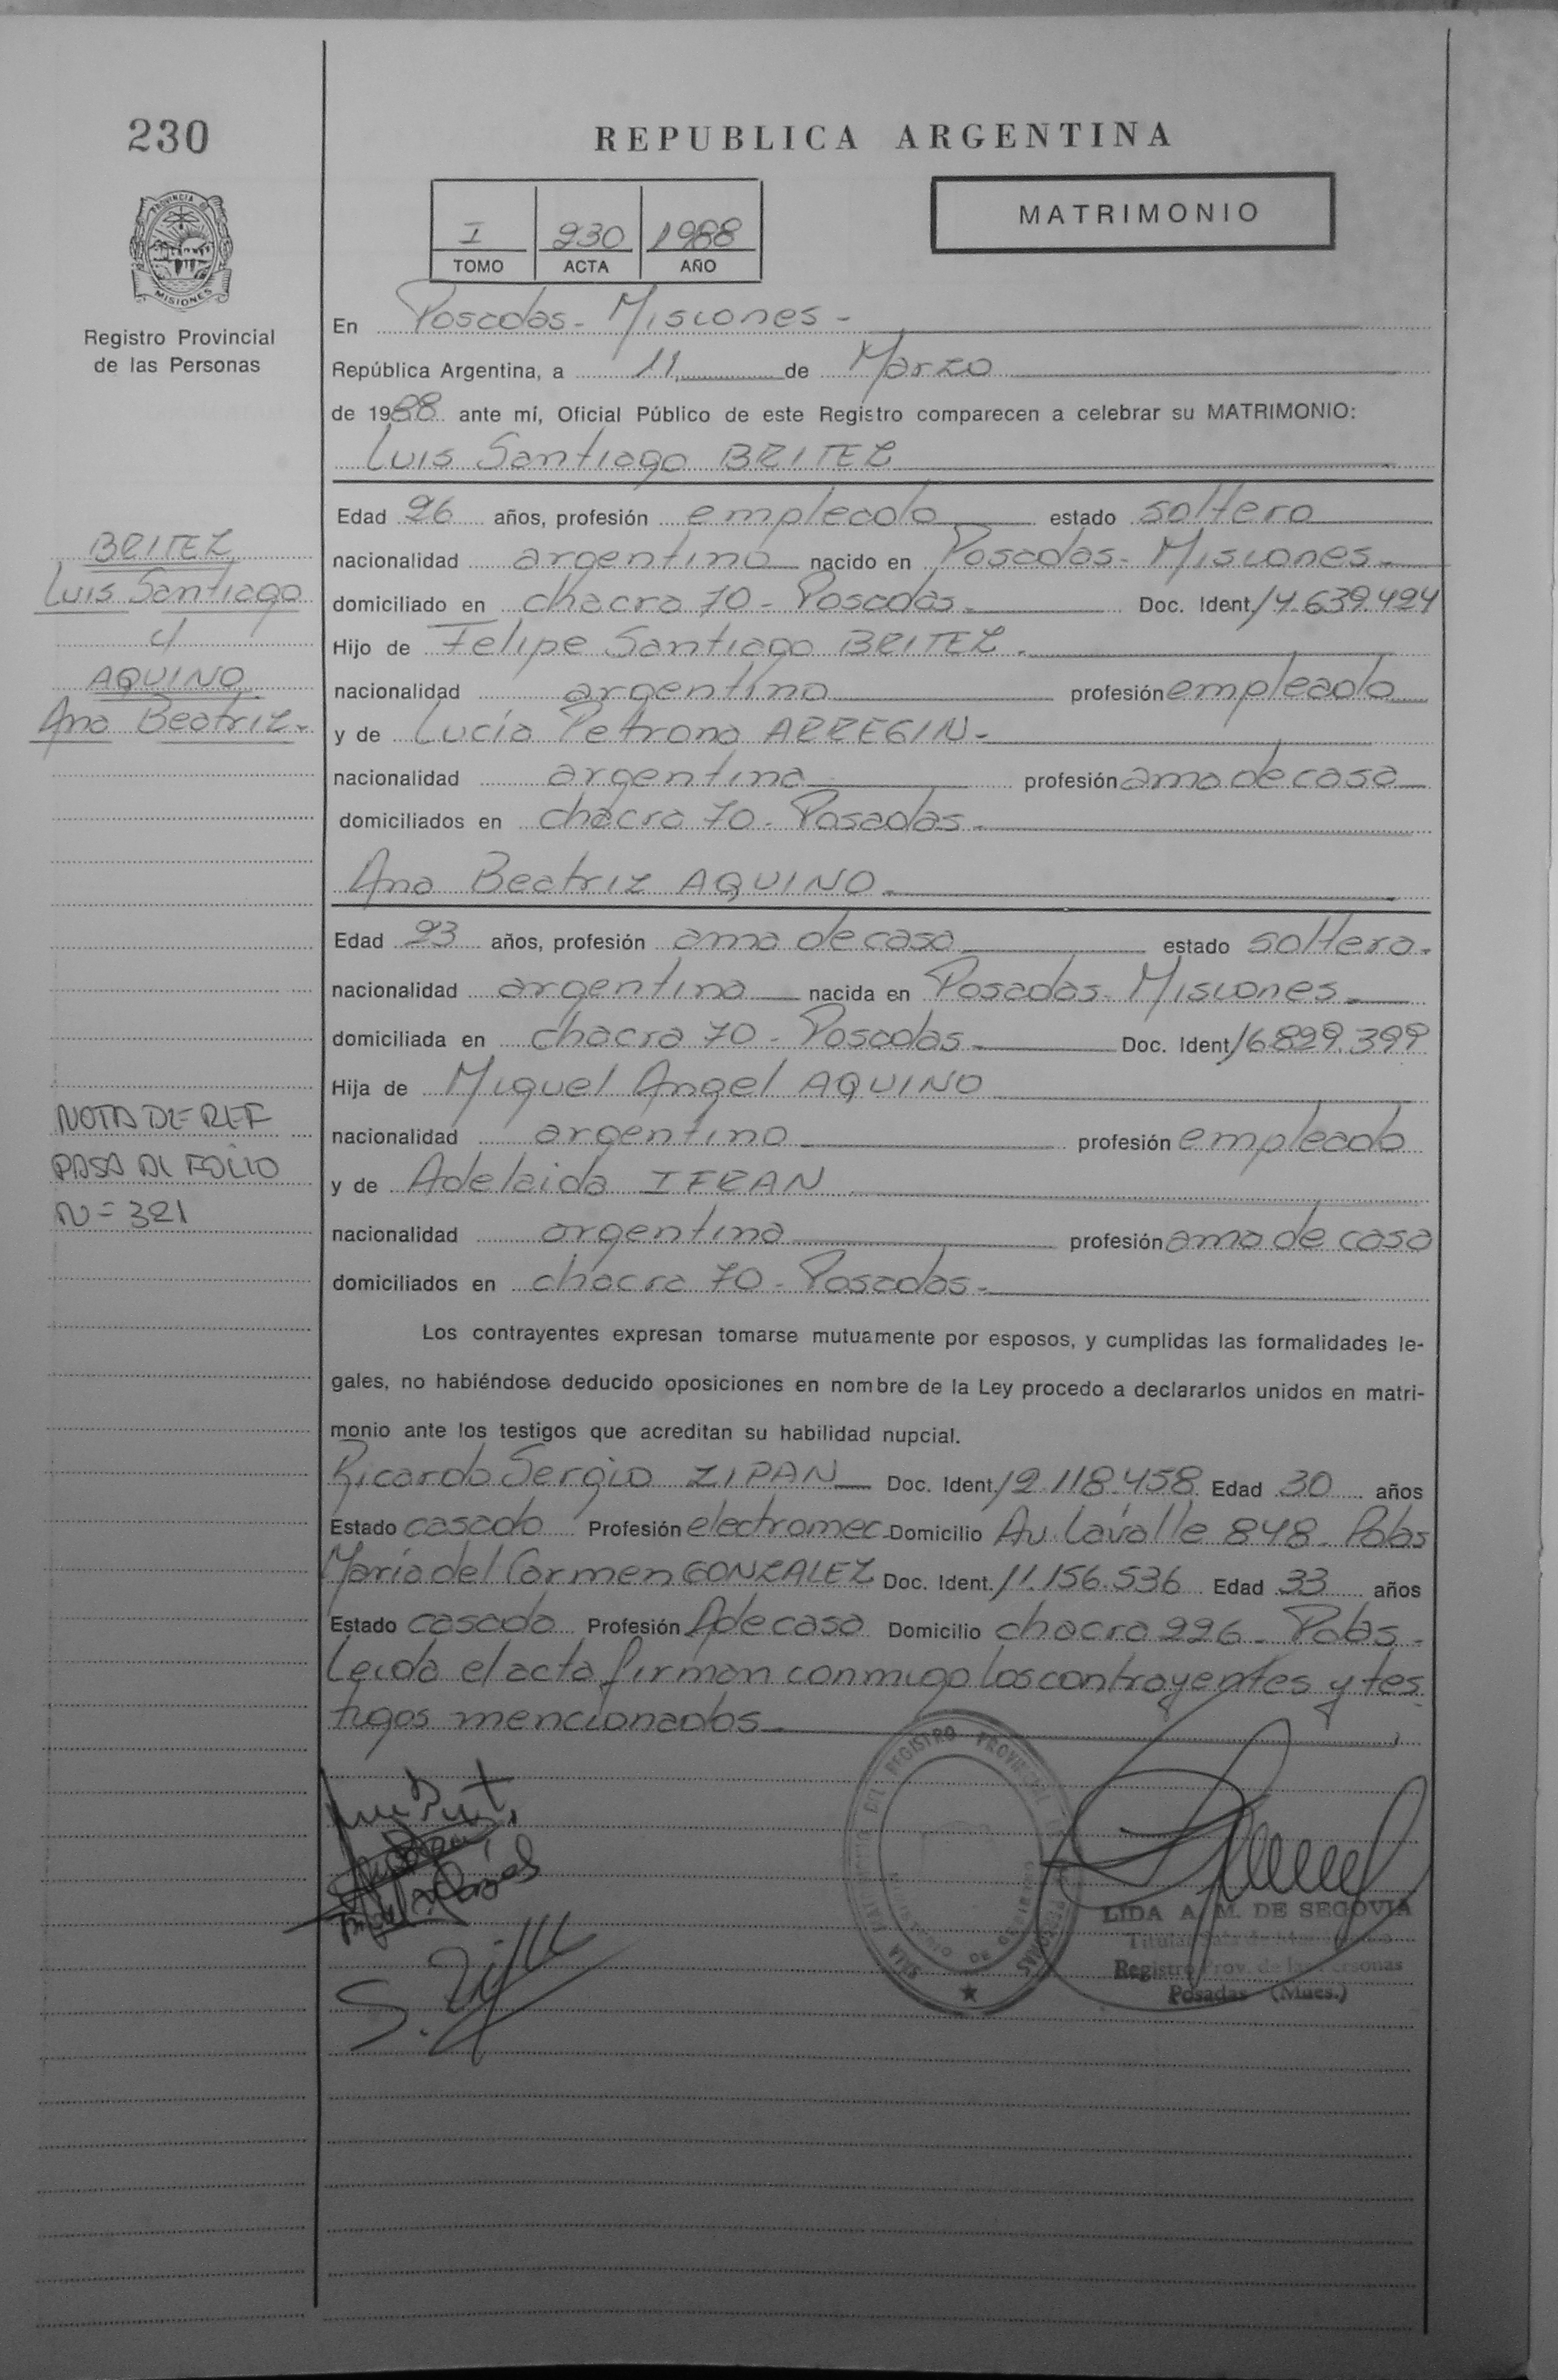 230
REPUBLICA ARGENTINA
I 230 1988
TOMO ACTA AÑO
MATRIMONIO
PROVINCIA DE
MISIONES
Registro Provincial
de las Personas
En Posadas - Misiones -
República Argentina, a 11, de Marzo
de 1988 ante mí, Oficial Público de este Registro comparecen a celebrar su MATRIMONIO:
Luis Santiago BRITEZ
Edad 26 años, profesión empleado estado soltero
nacionalidad argentino nacido en Posadas - Misiones -
domiciliado en chacra 70 - Posadas - Doc. Ident. 14.639.424
Hijo de Felipe Santiago BRITEZ -
nacionalidad argentino profesión empleado
y de Lucía Petrona ARREGIN -
nacionalidad argentina profesión ama de casa
domiciliados en chacra 70 - Posadas -
Ana Beatriz AQUINO -
Edad 23 años, profesión ama de casa estado soltera -
nacionalidad argentina nacida en Posadas - Misiones -
domiciliada en chacra 70 - Posadas - Doc. Ident. 16.829.399
Hija de Miguel Angel AQUINO
nacionalidad argentino profesión empleado
y de Adelaida IFRAN
nacionalidad argentina profesión ama de casa
domiciliados en chacra 70 - Posadas -
Los contrayentes expresan tomarse mutuamente por esposos, y cumplidas las formalidades le-
gales, no habiéndose deducido oposiciones en nombre de la Ley procedo a declararlos unidos en matri-
monio ante los testigos que acreditan su habilidad nupcial.
Ricardo Sergio ZIPAN Doc. Ident. 12.118.458 Edad 30 años
Estado casado Profesión electromec. Domicilio Av. Lavalle 848 - Pdas
María del Carmen GONZALEZ Doc. Ident. 11.156.536 Edad 33 años
Estado casada Profesión A de casa Domicilio chacra 226 - Pdas -
Leída el acta firman conmigo los contrayentes y tes
tigos mencionados -
BRITEZ
Luis Santiago
c/
AQUINO
Ana Beatriz -
NOTA DE REF
PASA AL FOLIO
N= 321
DEL REGISTRO PROVINCIAL DE LAS PERSONAS
MINISTERIO DE GOBIERNO
LIDA A. M. DE SEGOVIA
Registro Prov. de las Personas
Posadas (Mnes.)